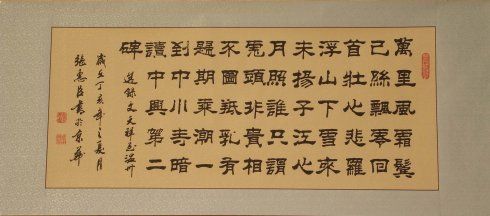 萬里風霜鬢
已絲飄零回
首壯心悲羅
浮山下雪來
未揚子江心
月照誰只謂
虎頭非貴相
不圖羝乳有
歸期乘潮一
到中川寺暗
讀中興第二
碑 選錄文天祥至温州
歲在丁亥年之夏月
張惠臣書於京華